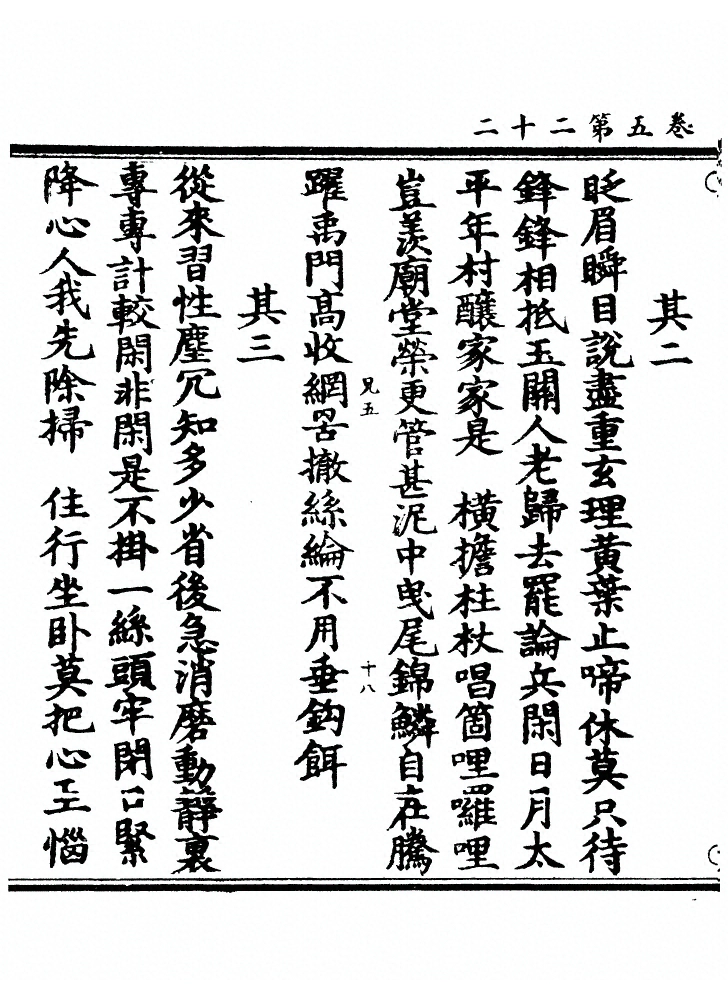 卷五第二十二
其二
眨眉瞬目說盡重玄理黃葉止啼休莫只待
鋒鋒相抵玉關人老歸去罷論兵閑日月太
平年村釀家家是　橫擔柱杖唱箇哩囉哩
豈羨廟堂榮更管甚泥中曳尾錦鱗自在騰
兄五　十八
躍禹門高收網罟撤絲綸不用垂鈎餌
其三
從來習性塵冗知多少省後急消磨動靜裏
專專計較閑非閑是不掛一絲頭牢閉口緊
降心人我先除掃　住行坐卧莫把心王惱